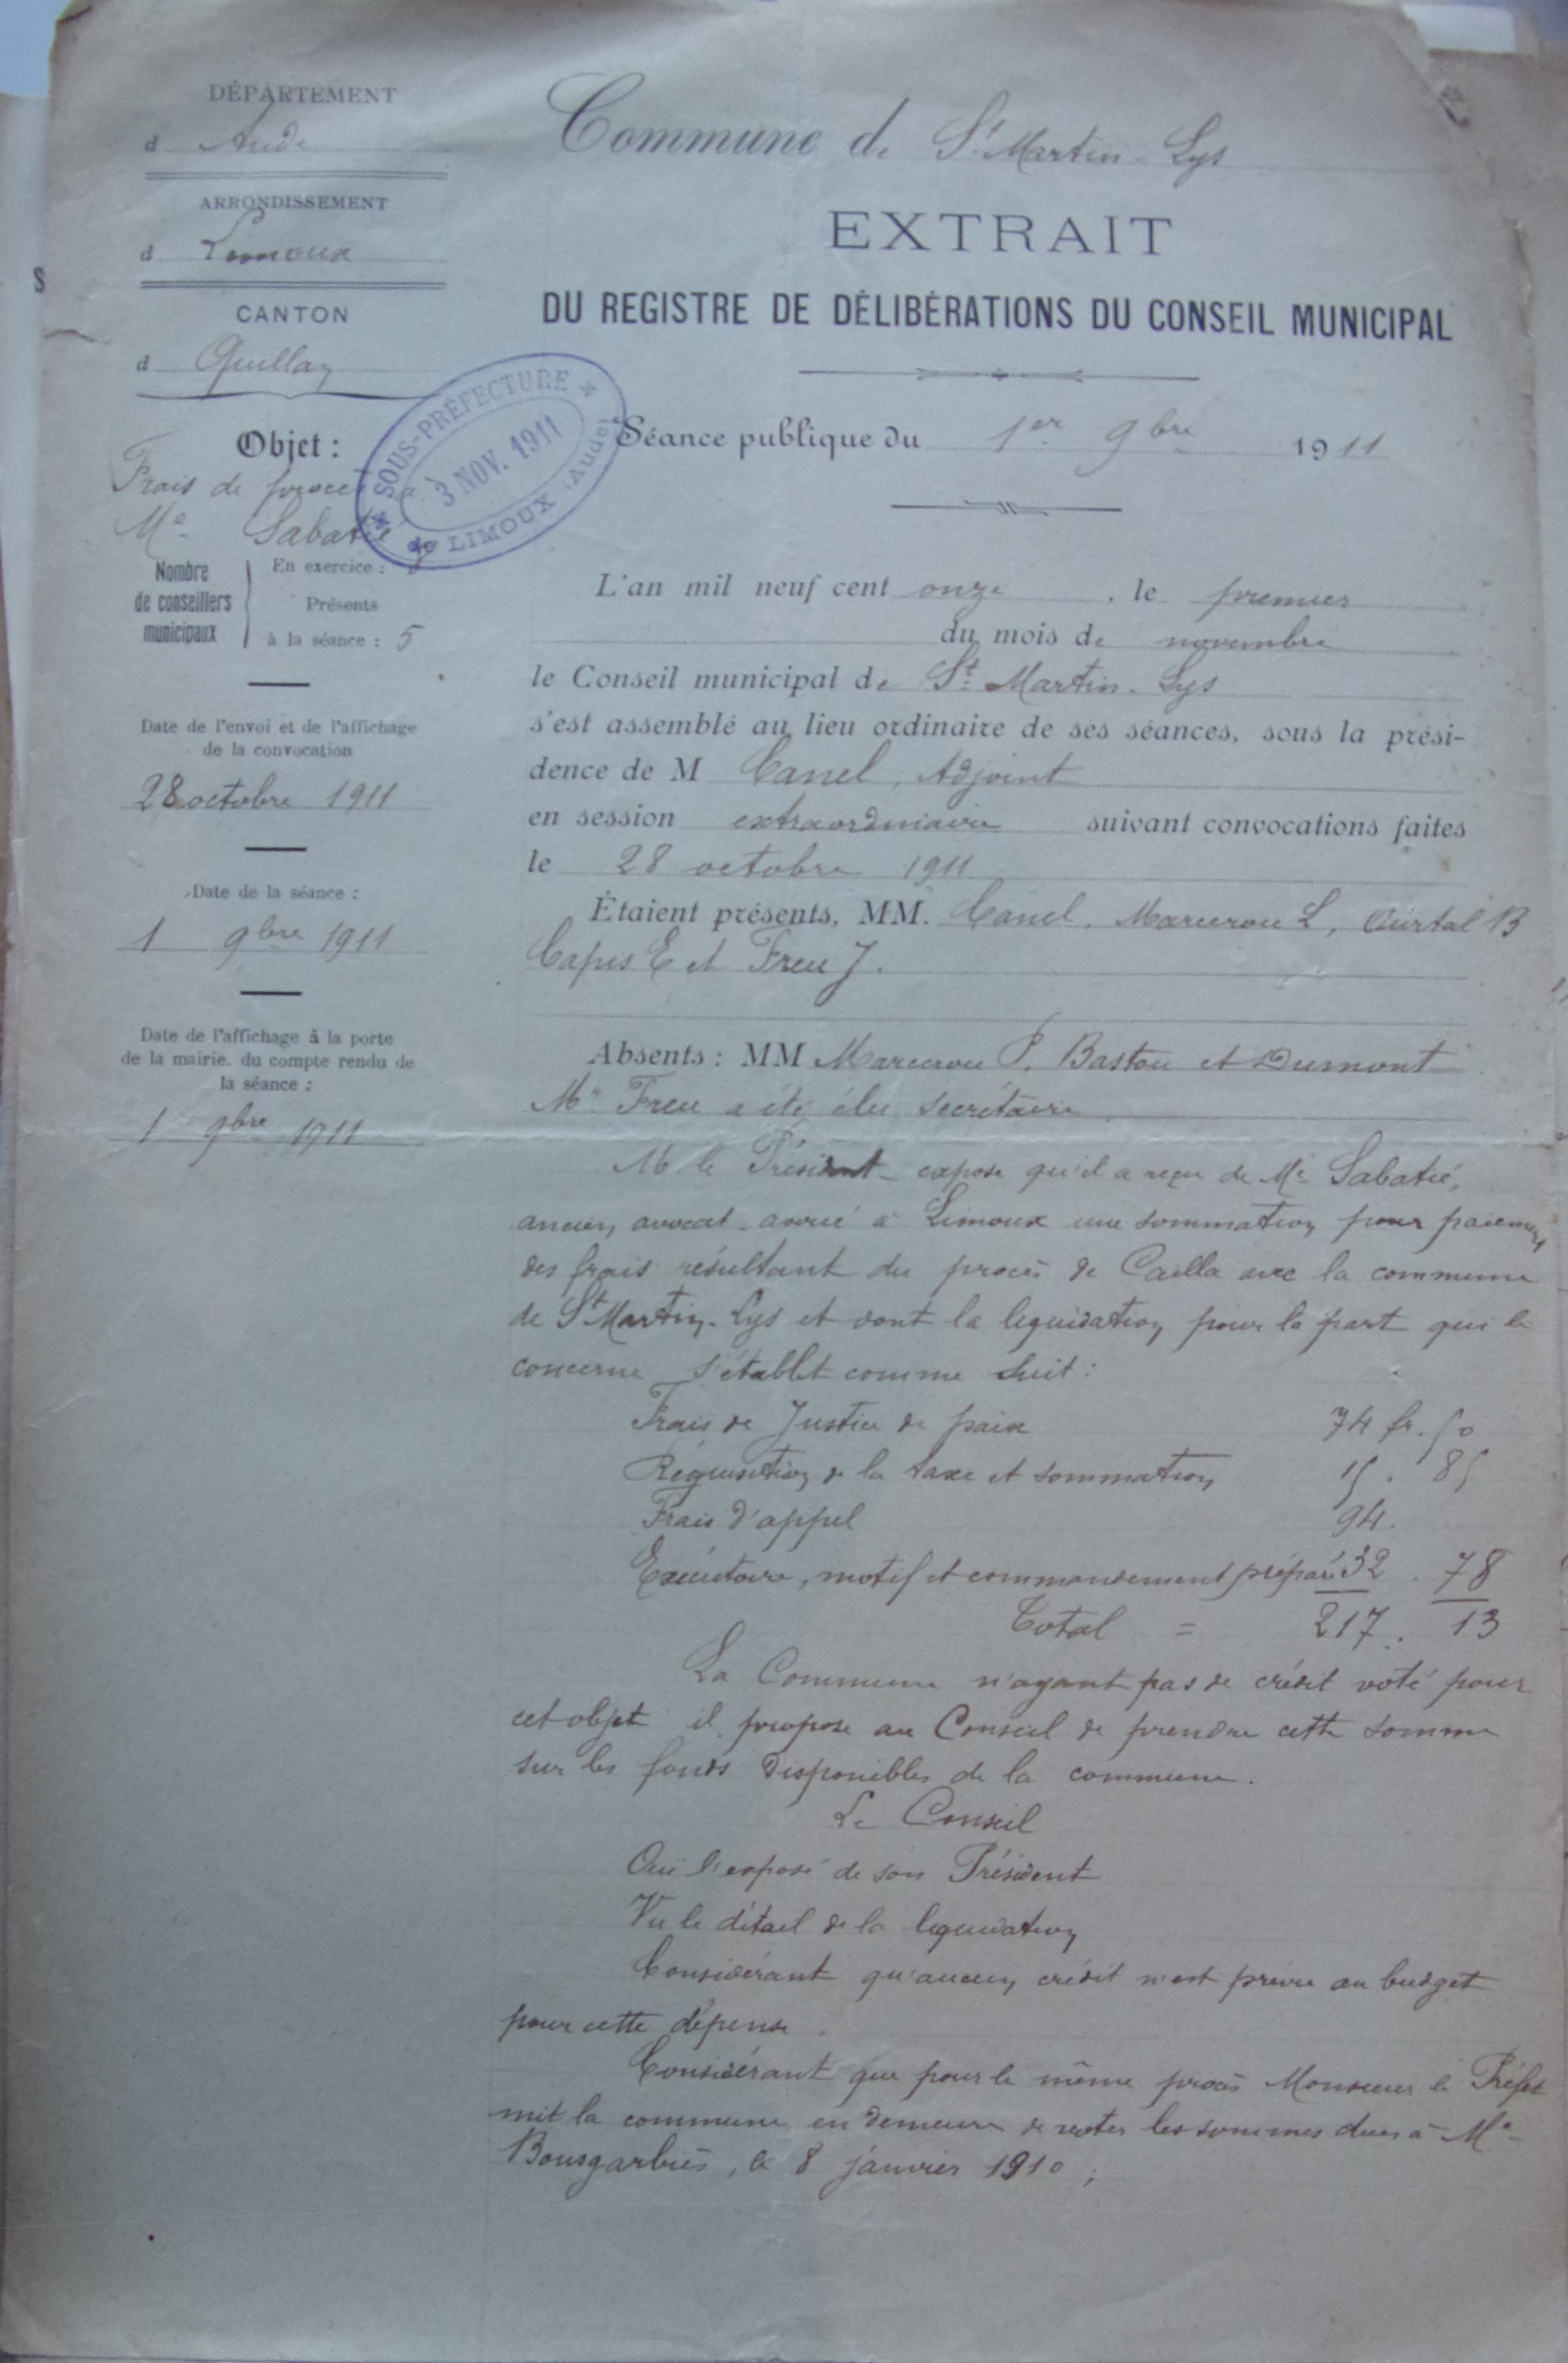 DÉPARTEMENT
d Aude
ARRONDISSEMENT
d Limoux
CANTON
d Quillan
Objet :
Frais de procès à
Me Sabatié
Nombre de conseillers municipaux
En exercice :
Présents
à la séance : 5
Date de l'envoi et de l'affichage
de la convocation
28 octobre 1911
Date de la séance :
1 9bre 1911
Date de l'affichage à la porte
de la mairie. du compte rendu de
la séance :
1 9bre 1911
SOUS-PRÉFECTURE
3 NOV. 1911
de LIMOUX (Aude)
Commune de St Martin-Lys
EXTRAIT
DU REGISTRE DE DÉLIBÉRATIONS DU CONSEIL MUNICIPAL
Séance publique du 1er 9bre 1911
L'an mil neuf cent onze, le premier
du mois de novembre
le Conseil municipal de St Martin-Lys
s'est assemblé au lieu ordinaire de ses séances, sous la prési-
dence de M Canel, Adjoint
en session extraordinaire suivant convocations faites
le 28 octobre 1911
Étaient présents, MM. Canel, Marcerou L, Ourtal B
Capus E et Freu J.
Absents : MM Marcerou P, Bastou et Dumont
Mr Freu a été élu secrétaire
M. le Président expose qu'il a reçu de Me Sabatié,
ancien avocat-avoué à Limoux une sommation pour paiement
des frais résultant du procès de Cailla avec la commune
de St Martin-Lys et dont la liquidation pour la part qui le
concerne s'établit comme suit :
Frais de Justice de paix 74 fr. 50
Réquisition de la taxe et sommation 15. 85
Frais d'appel 94.
Exécutoire, motif et commandement préparé 32. 78
Total = 217. 13
La Commune n'ayant pas de crédit voté pour
cet objet il propose au Conseil de prendre cette somme
sur les fonds disponibles de la commune.
Le Conseil
Ouï l'exposé de son Président
Vu le détail de la liquidation
Considérant qu'aucun crédit n'est prévu au budget
pour cette dépense.
Considérant que pour le même procès Monsieur le Préfet
mit la commune en demeure de voter les sommes dues à Me
Bousgarbiès, le 8 janvier 1910 ;